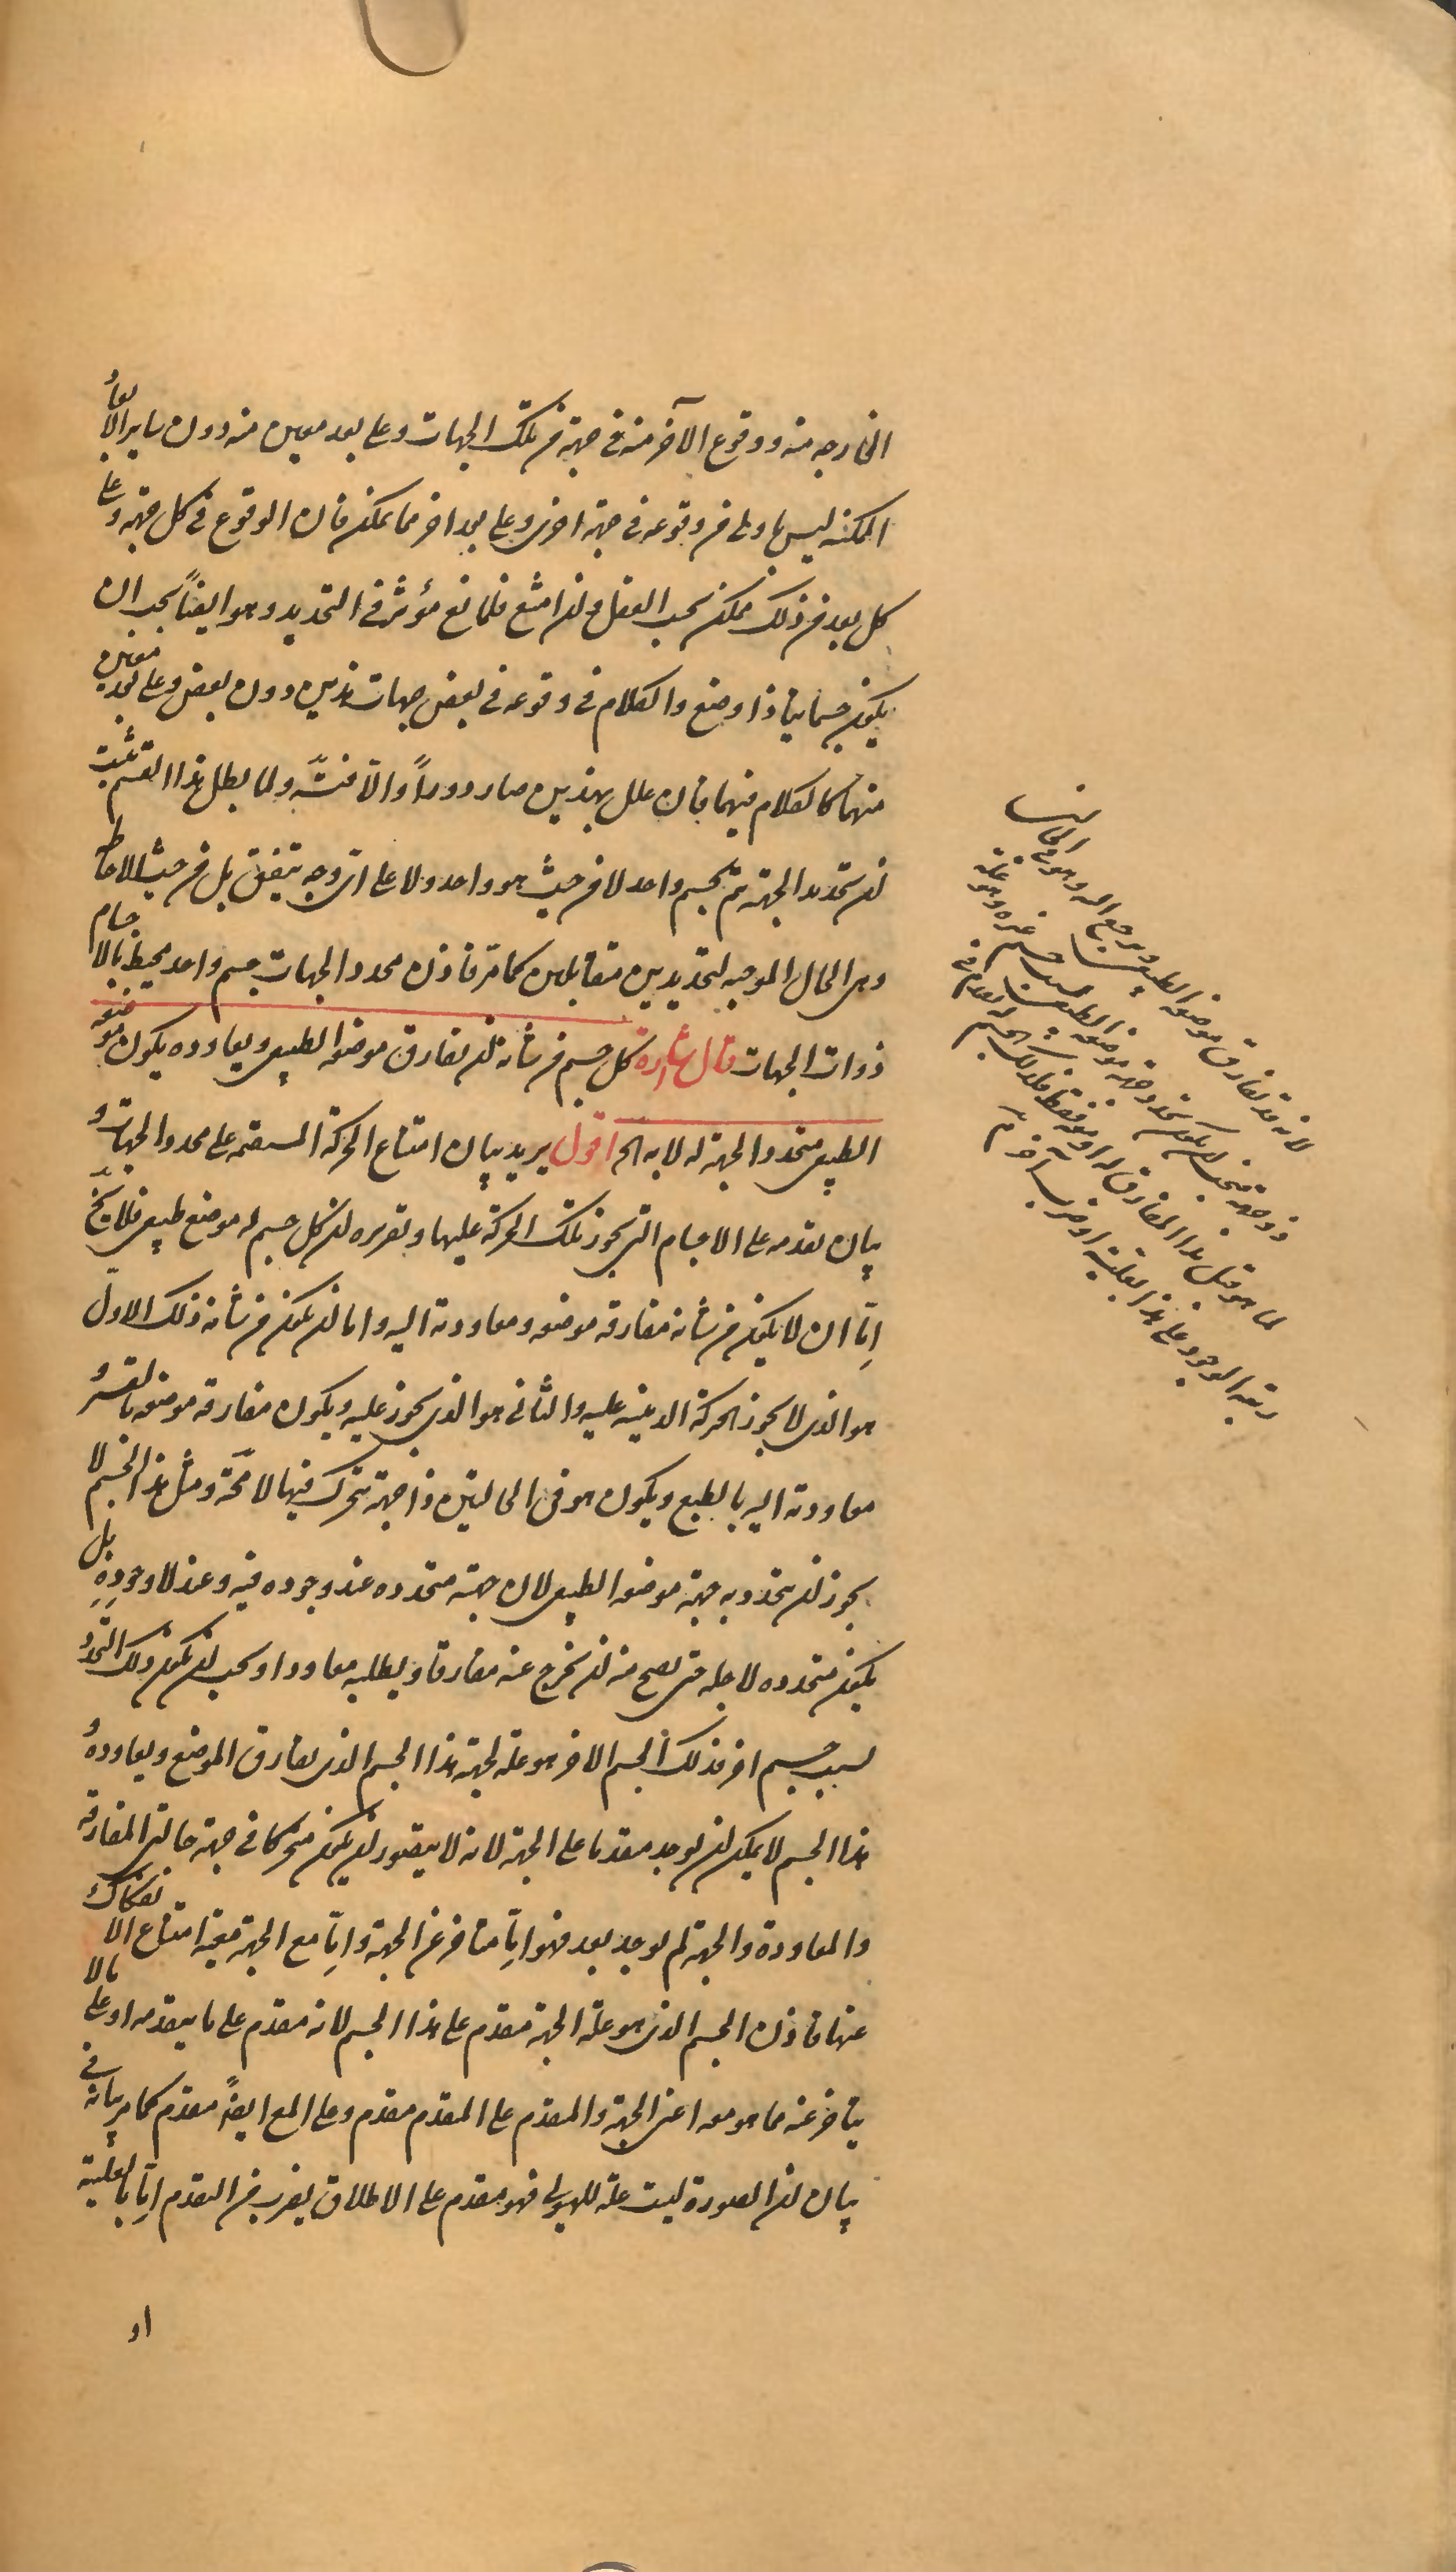 الخارجه منه ووقوع الآخر منه فى جهة من تلك الجهات وعلى بعد معين منه دون ساير الابعاد
الممكنه ليس باولى من وقوعه فى جهة اخرى وعلى بعد اخر مما يمكن فان الوقوع فى كل جهة وعلى
كل بعد من ذلك ممكن بحسب العقل وان امتنع فلمانع مؤثر فى التحديد وهو ايضاً يجب ان
يكون جسمانيا ذا وضع والكلام فى وقوعه فى بعض جهات هذين دون بعض وعلى بعد معين
منهما كالكلام فيهما فان علل بهذين صار دوراً والا تسلسل ولما بطل هذا القسم ثبت
ان تحدد الجهة يتم بجسم واحد لا من حيث هو واحد ولا على اى وجه يتفق بل من حيث الاحاطة
وهى الحال الموجبه لتحديدين متقابلين كما مر فاذن محدد الجهات جسم واحد محيط بالاجسام
ذوات الجهات قال اشارة كل جسم من شانه ان يفارق موضعه الطبيعى ويعاوده يكون موضعه
الطبيعى متحدد الجهة له لا به الخ اقول يريد بيان امتناع الحركة المستقيمه على محدد الجهات و
بيان تقدمه على الاجسام التى يجوز تلك الحركة عليها وتقريره ان كل جسم له موضع طبيعى فلا يخ
اما ان لا يكون من شانه مفارقة موضعه ومعاودته اليه واما ان يكون من شانه ذلك الاول
هو الذى لا يجوز الحركة الاينيه عليه والثانى هو الذى يجوز عليه ويكون مفارقة موضعه بالقسر و
معاودته اليه بالطبع ويكون هو فى الحالتين ذا جهة يتحرك فيها لا محة ومثل هذا الجسم لا
يجوز ان يتحدد به جهة موضعه الطبيعى لان جهته متحدده عند وجوده فيه وعند لا وجوده بل
يكون متحدده لاجله حتى يصح منه ان يخرج عنه مفارقا ويطلبه معاودا ويجب ان يكون ذلك التحدد
بسبب جسم اخر فذلك الجسم الاخر هو علة لجهة هذا الجسم الذى يفارق الموضع ويعاوده و
هذا الجسم لا يمكن ان يوجد متقدما على الجهة لانه لا يتصور ان يكون متحركا فى جهة حالتى المفارقة
والمعاودة والجهة لم توجد بعد فهو اما متاخر عن الجهة واما مع الجهة معية امتناع الانفكاك
عنها فاذن الجسم الذى هو علة الجهة متقدم على هذا الجسم لانه متقدم على ما يتقدمه او على ما لا
يتاخر عنه مما هو معه اعنى الجهة والمتقدم على المتقدم متقدم وعلى المع ايضاً متقدم كما مر بيانه فى
بيان ان الصورة ليست علة للهيولى فهو متقدم على الاطلاق بضرب من التقدم اما بالعلية
او
لانه قد يفارق موضعه الطبيعى ويرجع اليه وهو فى الحالتين
ذو جهة فيجب ان يكون تحدد جهة موضعه الطبيعى بسبب جسم غيره وهو علة
لما هو قبل هذا المفارق له او معه فقط فلذلك الجسم له تقدم فى
رتبة الوجود على هذا بعلية او ضرب آخر